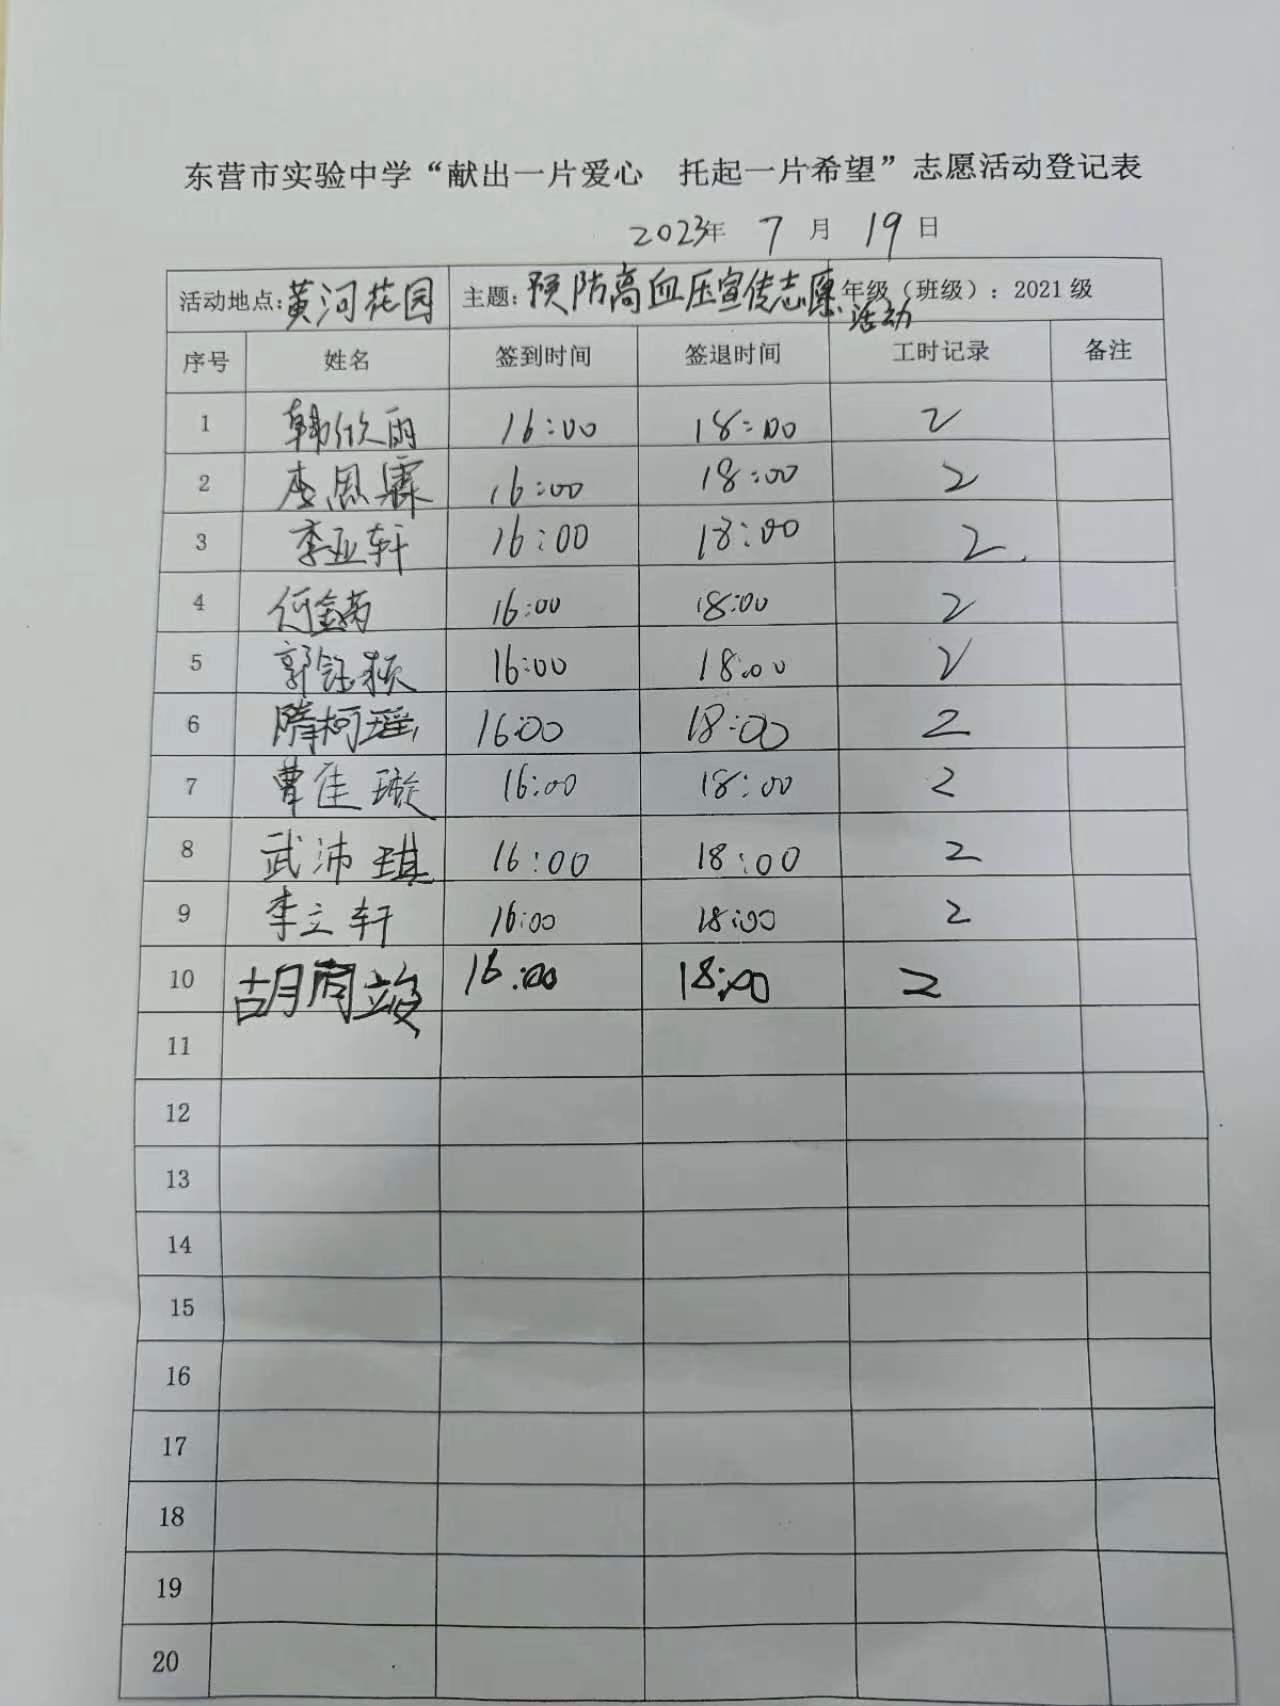 东营市实验中学“献出一片爱心 托起一片希望”志愿活动登记表
2023年 7 月 19 日
活动地点:黄河花园 主题:预防高血压宣传志愿活动 年级（班级）：2021 级
序号 姓名 签到时间 签退时间 工时记录 备注
1 韩欣雨 16:00 18:00 2
2 李恩霖 16:00 18:00 2
3 李亚轩 16:00 18:00 2
4 16:00 18:00 2
5 郭钰颍 16:00 18:00 2
6 隋柯瑶 16:00 18:00 2
7 曹佳璇 16:00 18:00 2
8 武沛琪 16:00 18:00 2
9 李立轩 16:00 18:00 2
10 胡周竣 16:00 18:00 2
11
12
13
14
15
16
17
18
19
20